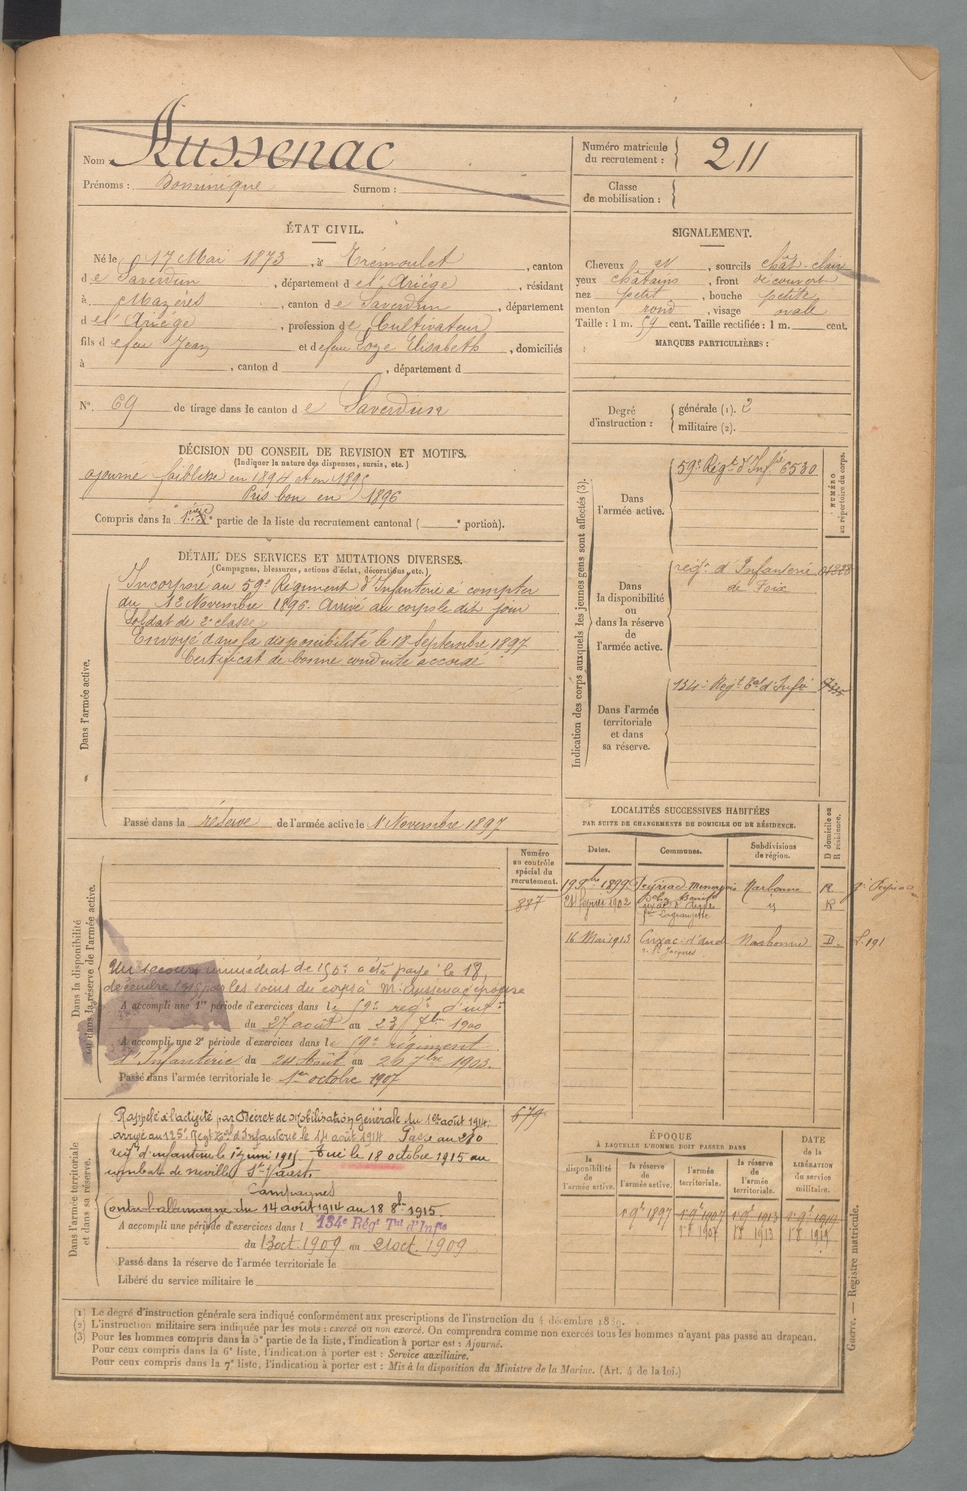 Nom : Aussenac
Prénoms : Dominique Surnom :
Numéro matricule du recrutement : 211
Classe de mobilisation :
ÉTAT CIVIL.
Né le 17 Mai 1873, à Trémoulet, canton
de Saverdun, département de l'Ariège, résidant
à Mazères, canton de Saverdun, département
de l'Ariège, profession de Cultivateur
fils de feu Jean et de feu Loze Elisabeth, domiciliés
à , canton d , département d
N° 69 de tirage dans le canton de Saverdun
SIGNALEMENT.
Cheveux et, sourcils chât-clair
yeux châtains, front découvert
nez petit, bouche petite
menton rond, visage ovale
Taille : 1 m. 59 cent. Taille rectifiée : 1 m. cent.
MARQUES PARTICULIÈRES :
Degré d'instruction : générale (1). 2
militaire (2).
DÉCISION DU CONSEIL DE REVISION ET MOTIFS.
(Indiquer la nature des dispenses, sursis, etc.)
ajourné faiblesse en 1894 et en 1895
Pris bon en 1896
Compris dans la partie de la liste du recrutement cantonal ( e portion).
DÉTAIL DES SERVICES ET MUTATIONS DIVERSES.
(Campagnes, blessures, actions d'éclat, décorations, etc.)
Dans l'armée active.
Incorporé au 59e Régiment d'Infanterie à compter
du 12 Novembre 1896. Arrivé au corps le dit jour
Soldat de 2e classe
Envoyé dans la disponibilité le 18 Septembre 1897
Certificat de bonne conduite accordé
Passé dans la réserve de l'armée active le 1r Novembre 1897
Indication des corps auxquels les jeunes gens sont affectés (3).
NUMÉRO au répertoire du corps.
Dans l'armée active.
59e Régt d'Infie 6530
Dans la disponibilité ou dans la réserve de l'armée active.
régt d'Infanterie
de Foix
Dans l'armée territoriale et dans sa réserve.
134e Régt Tal d'Infie
LOCALITÉS SUCCESSIVES HABITÉES
PAR SUITE DE CHANGEMENTS DE DOMICILE OU DE RÉSIDENCE.
Dates. Communes. Subdivisions de région. D domicile ou R résidence.
19 8bre 1899 Peyriac Minervois Narbonne R
21 février 1902 R
16 Mai 1913 Cuxac-d'Aude Narbonne D.
Numéro au contrôle spécial du recrutement.
887
Dans la disponibilité ou dans la réserve de l'armée active.
Un secours immédiat de 150f a été payé le 18
décembre 1915 par les soins du corps à Me Aussenac épouse
A accompli une 1re période d'exercices dans le 59e régt d'inf
du 27 août au 23 7bre 1900
A accompli une 2e période d'exercices dans le 59e régiment
d'Infanterie du 24 Août au 20 7bre 1903.
Passé dans l'armée territoriale le 1er octobre 1907
Dans l'armée territoriale et dans sa réserve.
679
Rappelé à l'activité par Décret de Mobilisation Générale du 1er août 1914.
arrivé au 125e Régt Tal d'Infanterie le 14 août 1914. Passé au 280
régt d'infanterie le juin 1915 Tué le 18 octobre 1915 au
combat de Neuville St-Vaast.
Campagnes
Contre l'allemagne du 14 août 1914 au 18 8bre 1915.
A accompli une période d'exercices dans l 134e Régt Tal d'Infie
du 13 oct. 1909 au 21 oct. 1909
Passé dans la réserve de l'armée territoriale le
Libéré du service militaire le
ÉPOQUE
À LAQUELLE L'HOMME DOIT PASSER DANS
la disponibilité de l'armée active. la réserve de l'armée active. l'armée territoriale. la réserve de l'armée territoriale. DATE de la LIBÉRATION du service militaire.
1r 9e 1897 1r 9e 1907 1r 9e 1913 1r 9e 1919
1r 8 1907 1r 8 1913 1r 8 1919
Guerre. — Registre matricule.
(1) Le degré d'instruction générale sera indiqué conformément aux prescriptions de l'instruction du 4 décembre 1889.
(2) L'instruction militaire sera indiquée par les mots : exercé ou non exercé. On comprendra comme non exercés tous les hommes n'ayant pas passé au drapeau.
(3) Pour les hommes compris dans la 5e partie de la liste, l'indication à porter est : Ajourné.
Pour ceux compris dans la 6e liste, l'indication à porter est : Service auxiliaire.
Pour ceux compris dans la 7e liste, l'indication à porter est : Mis à la disposition du Ministre de la Marine. (Art. 4 de la loi.)